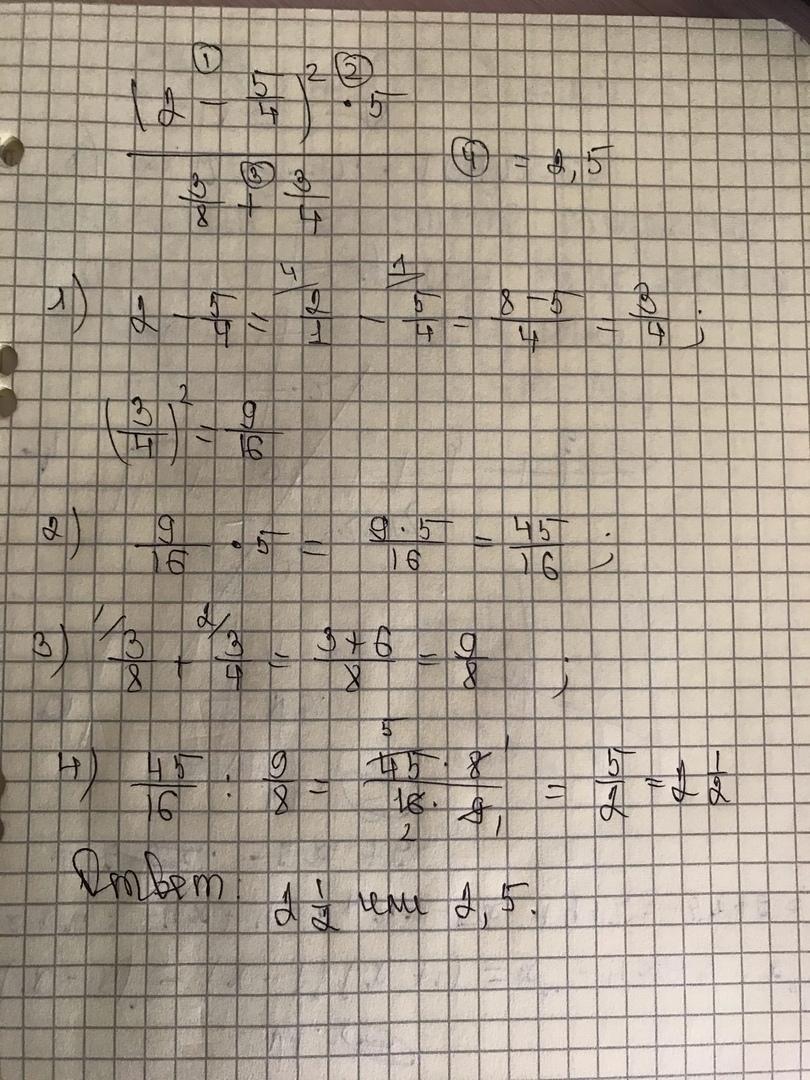 ((2 - 5/4)² · 5) / (3/8 + 3/4) = 2,5
1) 2 - 5/4 = 2/1 - 5/4 = (8-5)/4 = 3/4 ;
(3/4)² = 9/16
2) 9/16 · 5 = (9·5)/16 = 45/16 ;
3) 3/8 + 3/4 = (3+6)/8 = 9/8 ;
4) 45/16 : 9/8 = (45·8)/(16·9) = 5/2 = 2 1/2
Ответ: 2 1/2 или 2,5.